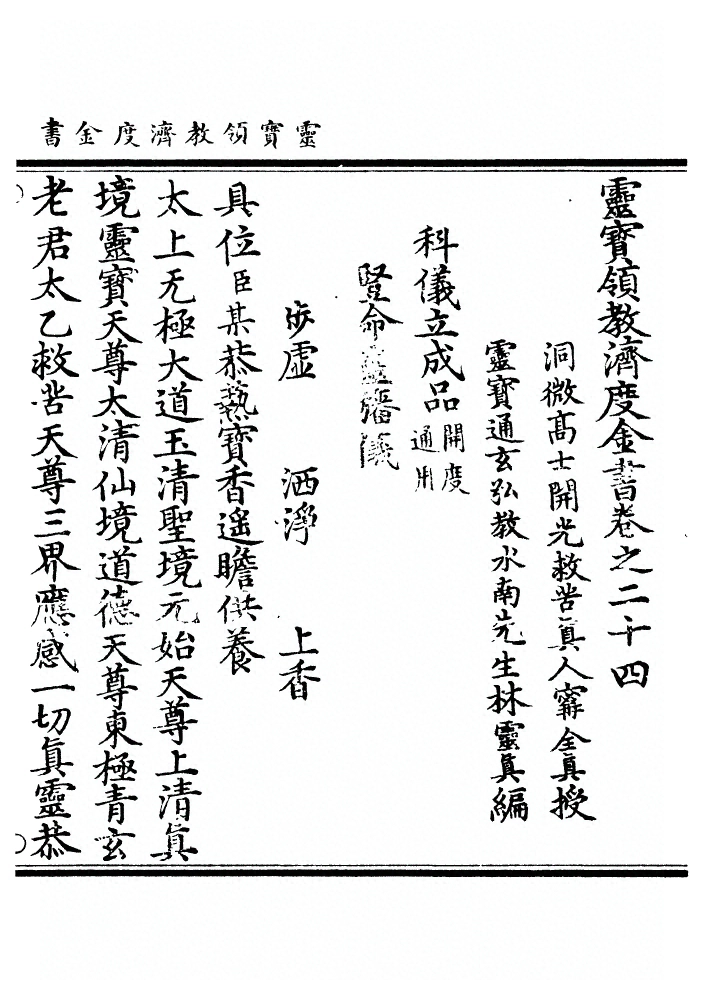 靈寶領教濟度金書
靈寶領教濟度金書卷之二十四
洞微高士開光救苦真人甯全真授
靈寶通玄弘教水南先生林靈真編
科儀立成品 開度 通用
豎命靈旛儀
步虛 洒淨 上香
具位臣某恭爇寶香遙瞻供養
太上无極大道玉清聖境元始天尊上清真
境靈寶天尊太清仙境道德天尊東極青玄
老君太乙救苦天尊三界應感一切真靈恭